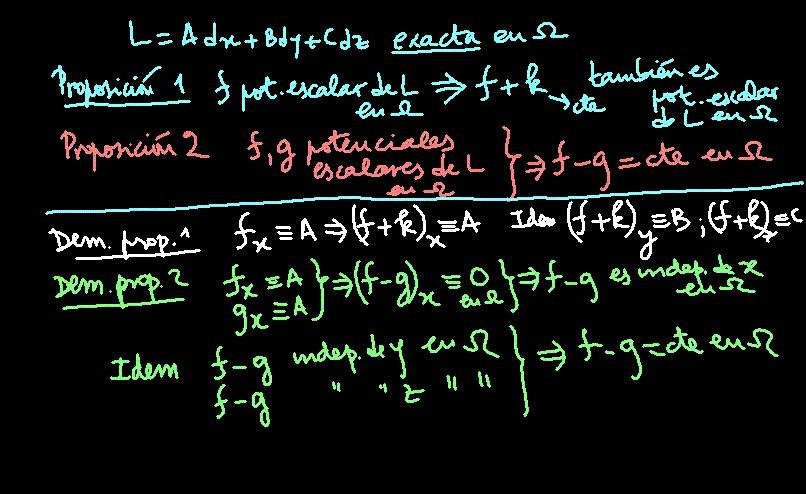 L = A dx + B dy + C dz exacta en Ω
Proposición 1 f pot. escalar de L en Ω ⇒ f + k → cte también es pot. escalar de L en Ω
Proposición 2 f, g potenciales escalares de L en Ω } ⇒ f - g = cte en Ω
Dem. prop. 1 fₓ ≡ A ⇒ (f + k)ₓ ≡ A Idem (f + k)_y ≡ B, (f + k)_z ≡ C
Dem. prop. 2 fₓ ≡ A
gₓ ≡ A } ⇒ (f - g)ₓ ≡ 0 en Ω } ⇒ f - g es indep. de x en Ω
Idem f - g indep. de y en Ω
f - g " " z " " } ⇒ f - g = cte en Ω